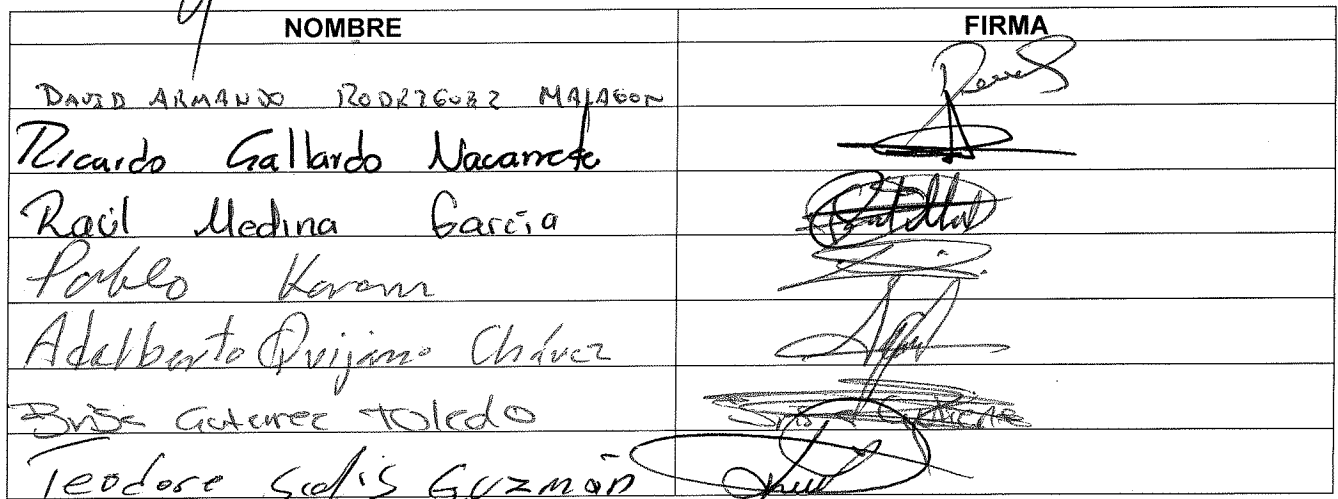 NOMBRE FIRMA
DAVID ARMANDO RODRIGUEZ MALAGON
Ricardo Gallardo Navarrete
Raúl Medina García
Pablo Karam
Adalberto Quijano Chávez
Brisa Gutierrez Toledo
Teodoro Solis Guzmán